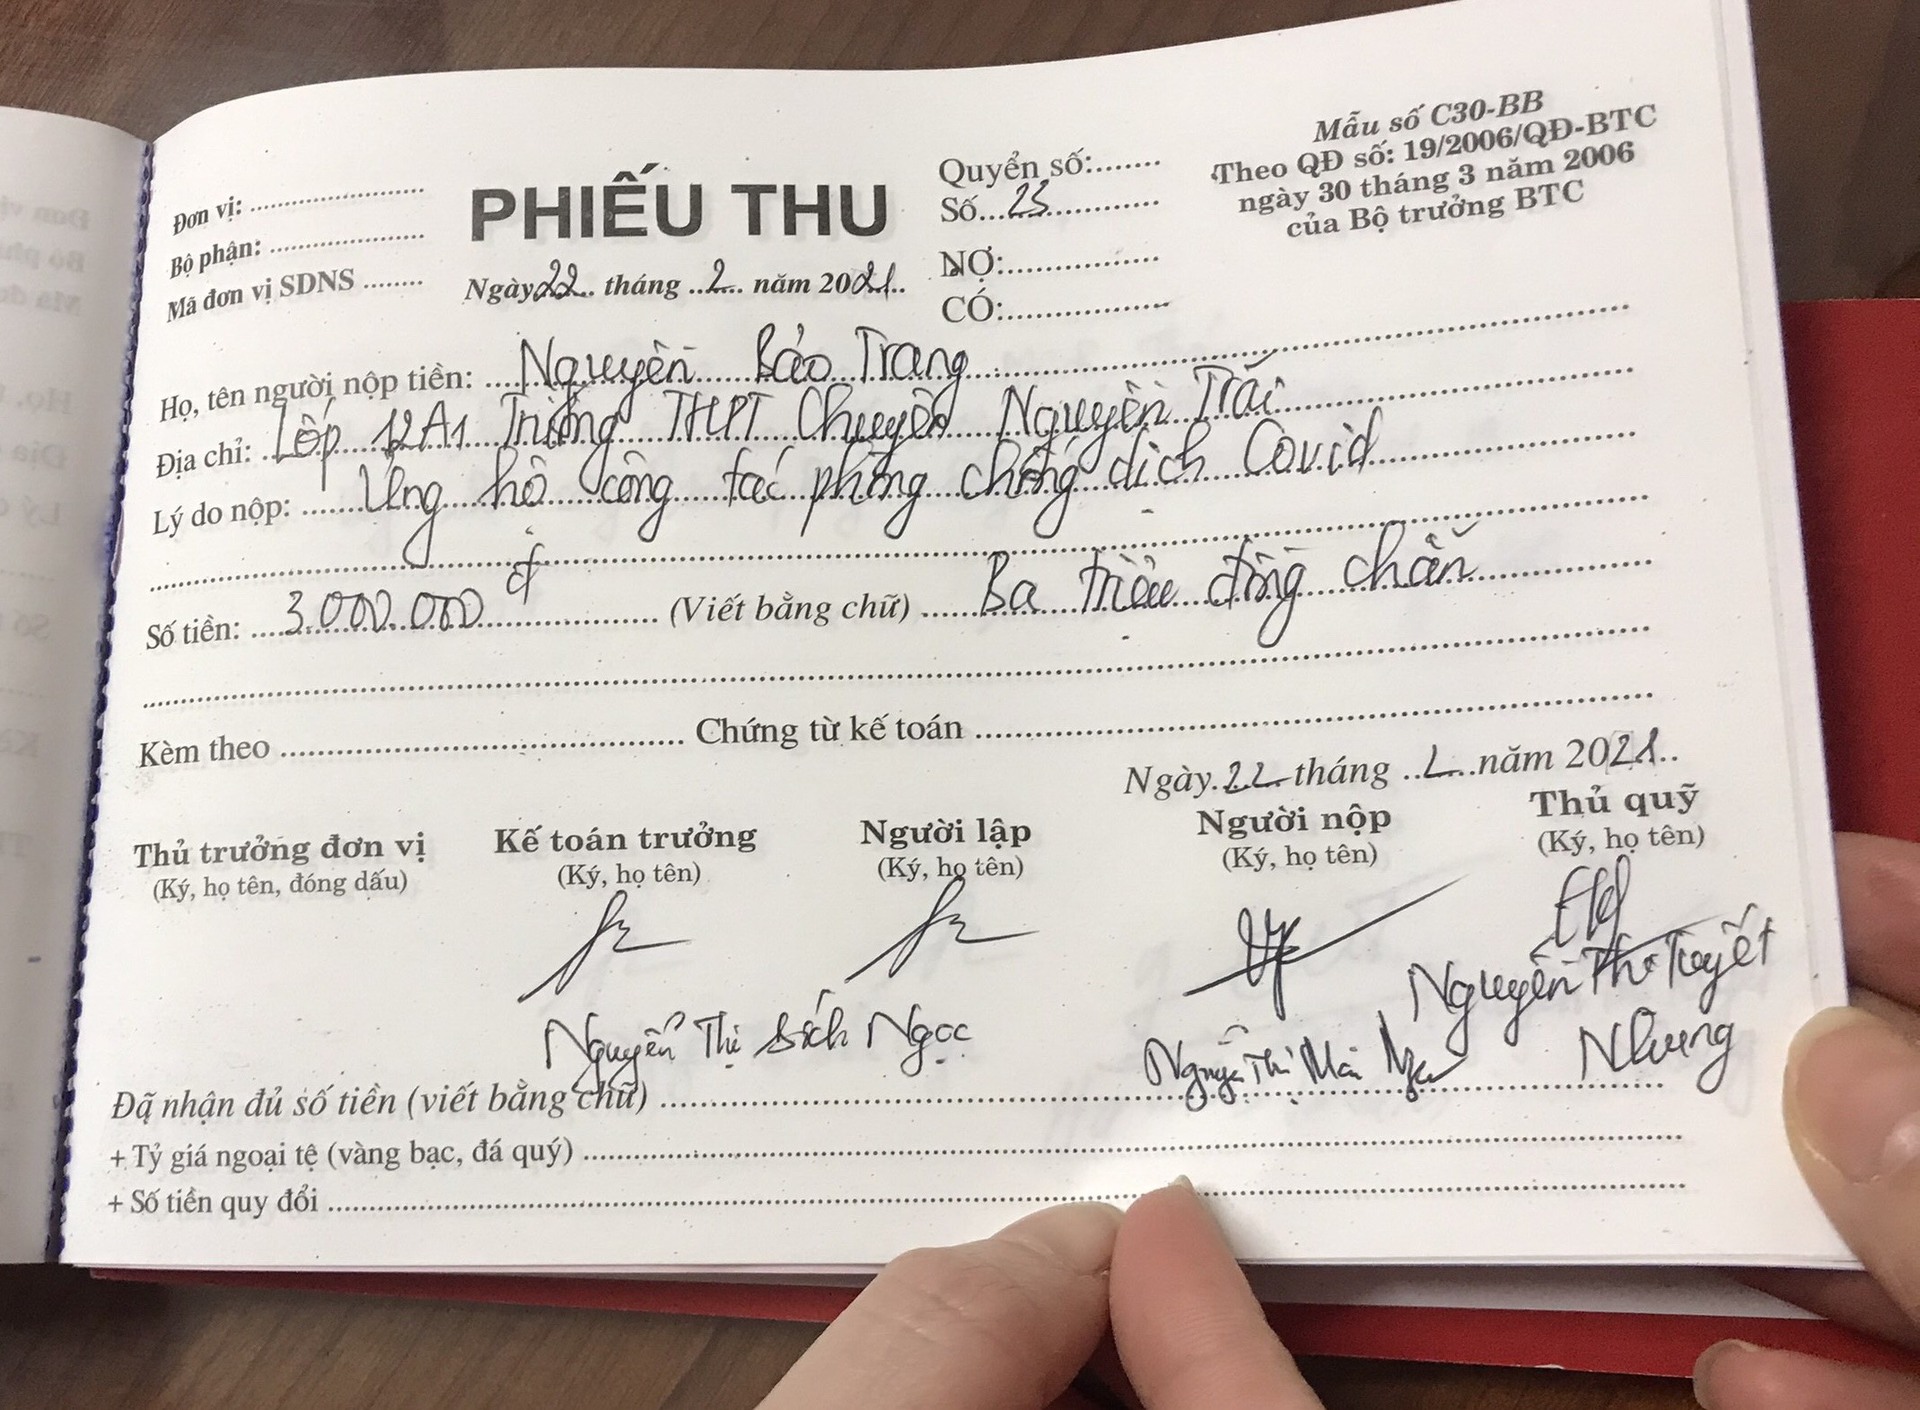 Mẫu số C30-BB
Theo QĐ số: 19/2006/QĐ-BTC
ngày 30 tháng 3 năm 2006
của Bộ trưởng BTC
Đơn vị: ....................
Bộ phận: ....................
Mã đơn vị SDNS ........
PHIẾU THU
Ngày 22 tháng 2 năm 2021
Quyển số:.......
Số...23...............
NỢ:..................
CÓ:...................
Họ, tên người nộp tiền: Nguyễn Bảo Trang
Địa chỉ: Lớp 12A1 Trường THPT Chuyên Nguyễn Trãi
Lý do nộp: Ủng hộ công tác phòng chống dịch Covid
Số tiền: 3.000.000 đ (Viết bằng chữ) Ba triệu đồng chẵn
Kèm theo ........................ Chứng từ kế toán ........................
Ngày 22 tháng 2 năm 2021
Thủ trưởng đơn vị Kế toán trưởng Người lập Người nộp Thủ quỹ
(Ký, họ tên, đóng dấu) (Ký, họ tên) (Ký, họ tên) (Ký, họ tên) (Ký, họ tên)
Nguyễn Thị Tuyết
Nhung
Nguyễn Thị Bích Ngọc Nguyễn Thị
Đã nhận đủ số tiền (viết bằng chữ) ........................
+ Tỷ giá ngoại tệ (vàng bạc, đá quý) ........................
+ Số tiền quy đổi ........................